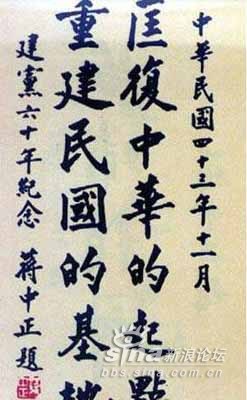 中華民國四十三年十一月
匡復中華的起點
重建民國的基地
建黨六十年紀念 蔣中正題
sina 新浪论坛
bbs.sina.com.cn